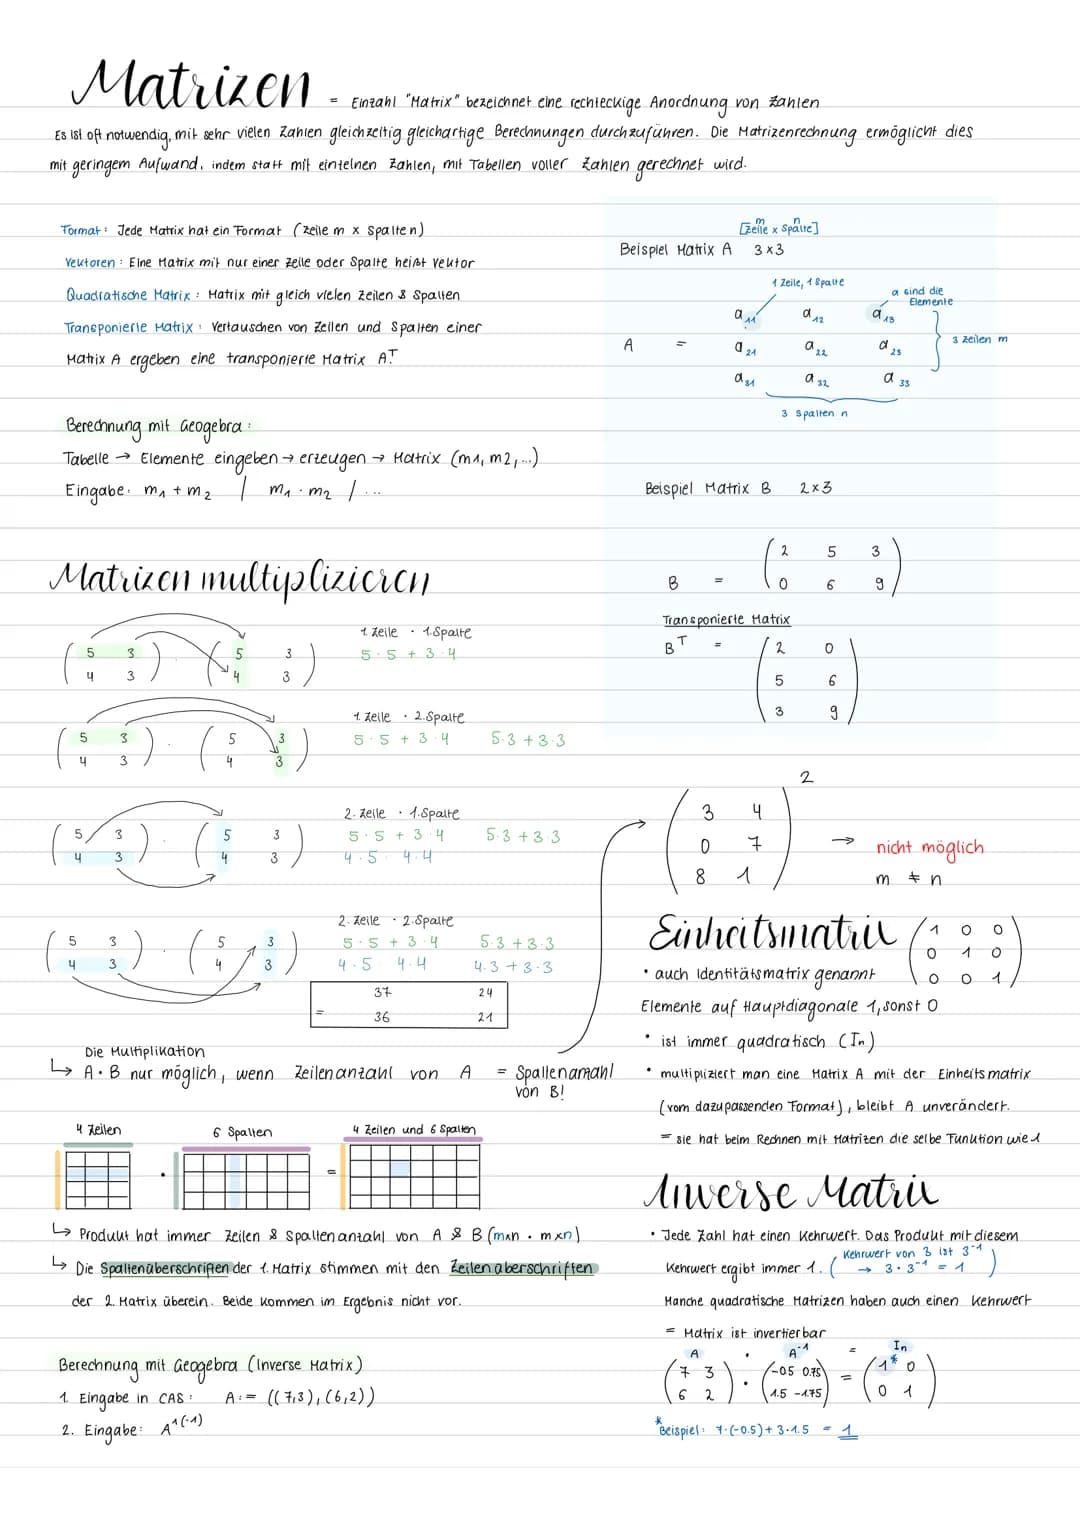 Matrizen = Einzahl "Matrix" bezeichnet eine rechteckige Anordnung von Zahlen
Es ist oft notwendig, mit sehr vielen Zahlen gleichzeitig gleichartige Berechnungen durchzuführen. Die Matrizenrechnung ermöglicht dies
mit geringem Aufwand, indem statt mit einzelnen Zahlen, mit Tabellen voller Zahlen gerechnet wird.
Format: Jede Matrix hat ein Format (Zeile m x Spalten)
Vektoren: Eine Matrix mit nur einer Zeile oder Spalte heißt Vektor
Quadratische Matrix: Matrix mit gleich vielen Zeilen & Spalten
Transponierte Matrix: Vertauschen von Zeilen und Spalten einer
Matrix A ergeben eine transponierte Matrix A^T
Berechnung mit Geogebra:
Tabelle → Elemente eingeben → erzeugen → Matrix (m1, m2,...)
Eingabe: m1 + m2 / m1 · m2 / ...
m n
[Zeile x Spalte]
Beispiel Matrix A 3x3
1 Zeile, 1 Spalte
a sind die
Elemente
a11 a12 a13
A = a21 a22 a23
3 Zeilen m
a31 a32 a33
3 Spalten n
Beispiel Matrix B 2x3
2 5 3
B =
0 6 9
Transponierte Matrix
B^T = 2 0
5 6
3 9
Matrizen multiplizieren
1. Zeile · 1. Spalte
5 3 · 5 3
5·5 + 3·4
4 3 4 3
1. Zeile · 2. Spalte
5 3 · 5 3
5·5 + 3·4 5·3 + 3·3
4 3 4 3
2. Zeile · 1. Spalte
5 3 · 5 3
5·5 + 3·4 5·3 + 3·3
4 3 4 3
4·5 4·4
2. Zeile · 2. Spalte
5 3 · 5 3
5·5 + 3·4 5·3 + 3·3
4 3 4 3
4·5 4·4 4·3 + 3·3
37 24
= 36 21
Die Multiplikation
↳ A · B nur möglich, wenn Zeilenanzahl von A = Spaltenanzahl
von B!
4 Zeilen 6 Spalten 4 Zeilen und 6 Spalten
· =
↳ Produkt hat immer Zeilen & Spaltenanzahl von A & B (mxn · mxn)
↳ Die Spaltenüberschriften der 1. Matrix stimmen mit den Zeilenüberschriften
der 2. Matrix überein. Beide kommen im Ergebnis nicht vor.
Berechnung mit Geogebra (Inverse Matrix)
1. Eingabe in CAS: A:= ((7,3),(6,2))
2. Eingabe: A^(-1)
2
3 4
0 7 → nicht möglich
8 1 m ≠ n
Einheitsmatrix
1 0 0
0 1 0
0 0 1
• auch Identitätsmatrix genannt
Elemente auf Hauptdiagonale 1, sonst 0
• ist immer quadratisch (In)
• multipliziert man eine Matrix A mit der Einheitsmatrix
(vom dazupassenden Format), bleibt A unverändert.
= sie hat beim Rechnen mit Matrizen die selbe Funktion wie 1
Inverse Matrix
• Jede Zahl hat einen Kehrwert. Das Produkt mit diesem
Kehrwert ergibt immer 1. (Kehrwert von 3 ist 3^-1
→ 3·3^-1 = 1)
Manche quadratische Matrizen haben auch einen Kehrwert
= Matrix ist invertierbar
A · A^-1 = In
7 3 · -0.5 0.75 = 1* 0
6 2 1.5 -1.75 0 1
*Beispiel: 7·(-0.5) + 3·1.5 = 1